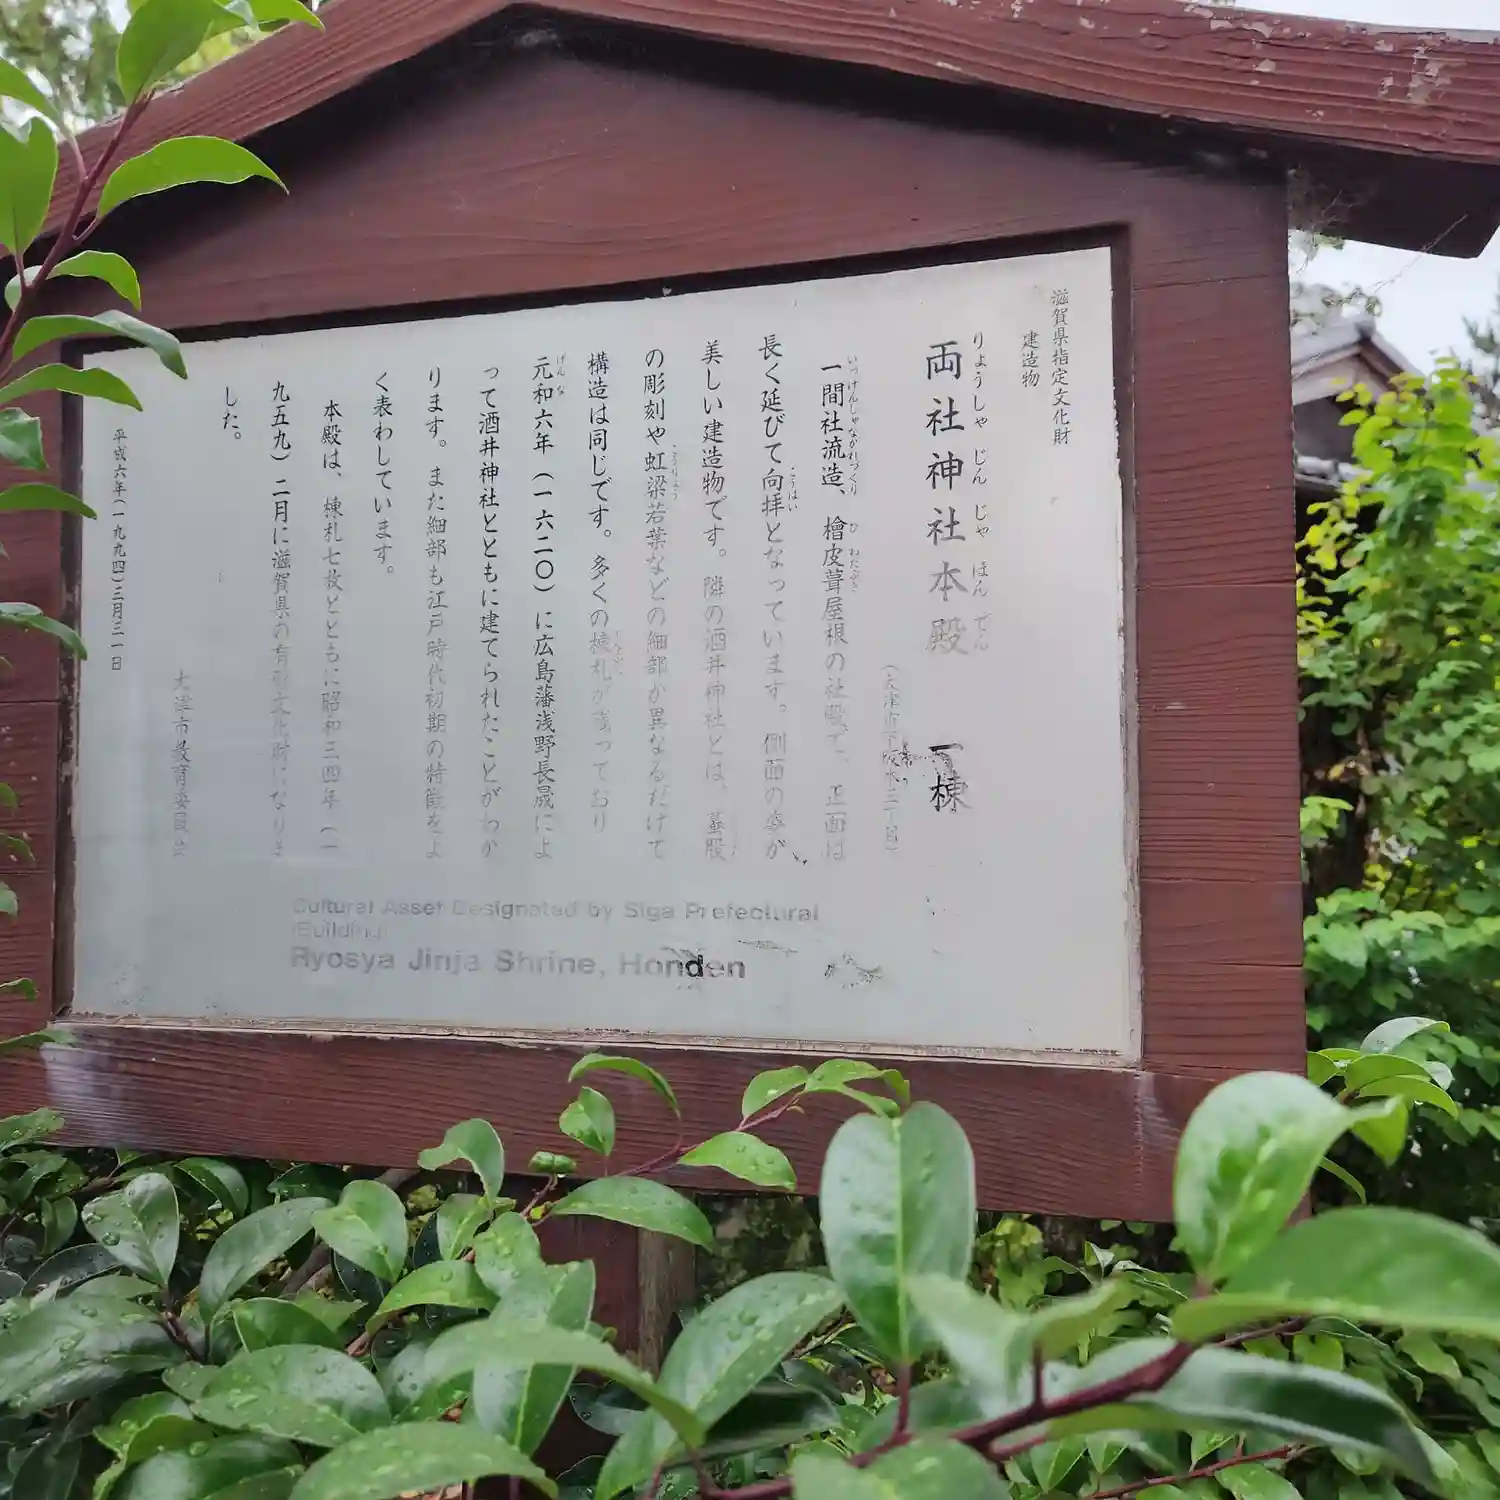 滋賀県指定文化財
建造物
りょうしゃ じん じゃ ほん でん
両社神社本殿 一棟
(大津市下阪本三丁目)
いっけんしゃながれづくり ひ わだぶき
一間社流造、檜皮葺屋根の社殿で、正面は
こうはい
長く延びて向拝となっています。側面の姿が
美しい建造物です。隣の酒井神社とは、蟇股
こうりょう
の彫刻や虹梁若葉などの細部が異なるだけで
構造は同じです。多くの棟札が残っており
げんな
元和六年(一六二〇)に広島藩浅野長晟によ
って酒井神社とともに建てられたことがわか
ります。また細部も江戸時代初期の特徴をよ
く表わしています。
本殿は、棟札七枚とともに昭和三四年(一
九五九)二月に滋賀県の有形文化財になりま
した。
大津市教育委員会
平成六年(一九九四)三月三一日
Cultural Asset Designated by Siga Prefectural
(Building)
Ryosya Jinja Shrine, Honden